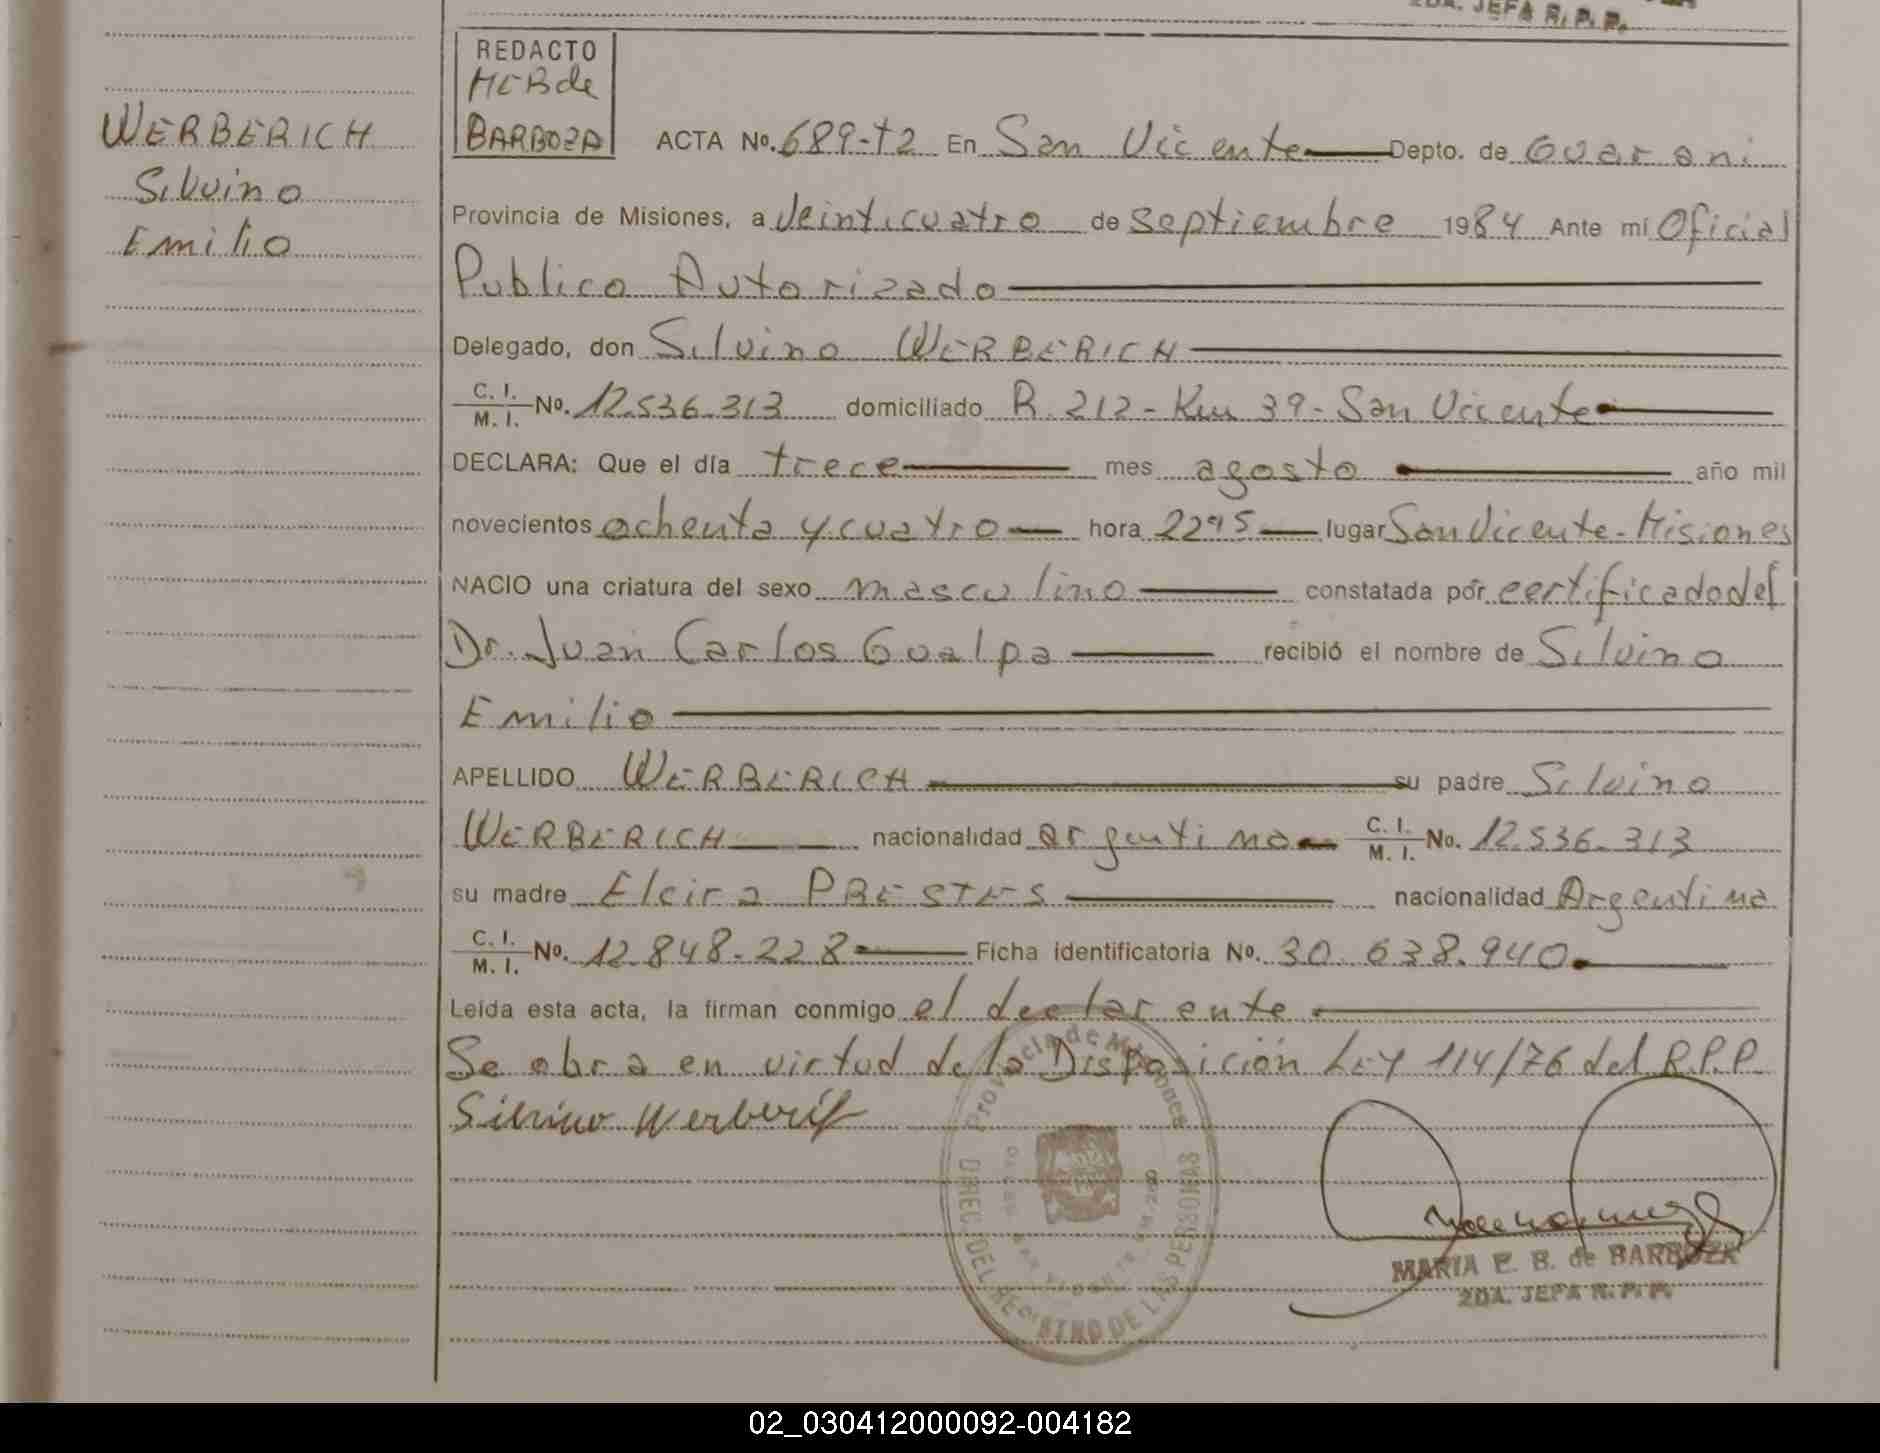 2DA. JEFA R. P. P.
REDACTO
MEB de
BARBOZA
WERBERICH
Silvino
Emilio
ACTA No. 689-T2 En San Vicente Depto. de Guarani
Provincia de Misiones, a veinticuatro de septiembre 1984 Ante mi Oficial
Publico Autorizado
Delegado, don Silvino WERBERICH
C. I. / M. I. No. 12.536.313 domiciliado R. 212 - Km 39 - San Vicente
DECLARA: Que el día trece mes agosto año mil
novecientos ochenta y cuatro hora 2245 lugar San Vicente - Misiones
NACIO una criatura del sexo masculino constatada por certificado del
Dr. Juan Carlos Gualpa recibió el nombre de Silvino
Emilio
APELLIDO WERBERICH su padre Silvino
WERBERICH nacionalidad argentina C. I. / M. I. No. 12.536.313
su madre Elcira PRESTES nacionalidad Argentina
C. I. / M. I. No. 12.848.228 Ficha identificatoria No. 30.638.940
Leída esta acta, la firman conmigo el declarante
Se obra en virtud de la Disposición Ley 114/76 del R.P.P.
Silvino Werberich
Provincia de Misiones
DIREC. DEL REGISTRO DE LAS PERSONAS
MARIA E. B. de BARBOZA
2DA. JEFA R. P. P.
02_030412000092-004182